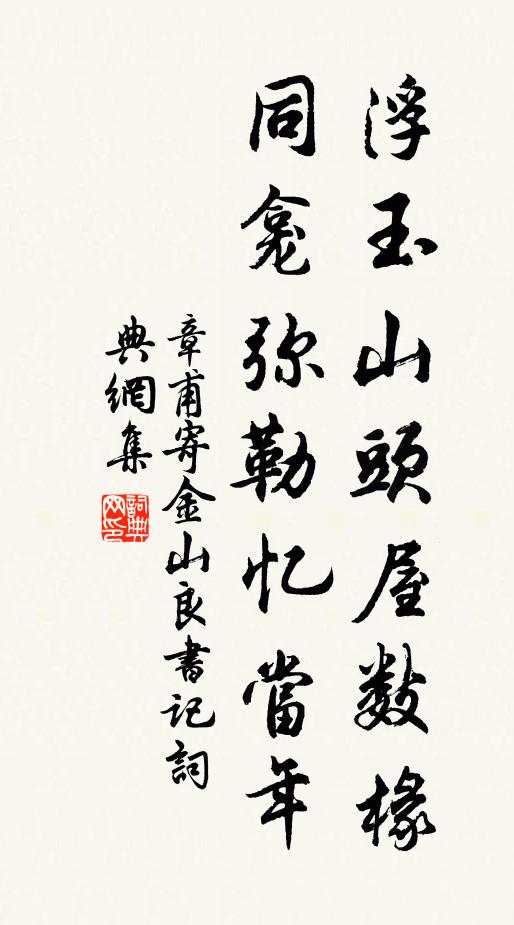 浮玉山頭屋数椽
同龛弥勒忆當年
章甫寄金山良書记詞
典網集
詞典网印